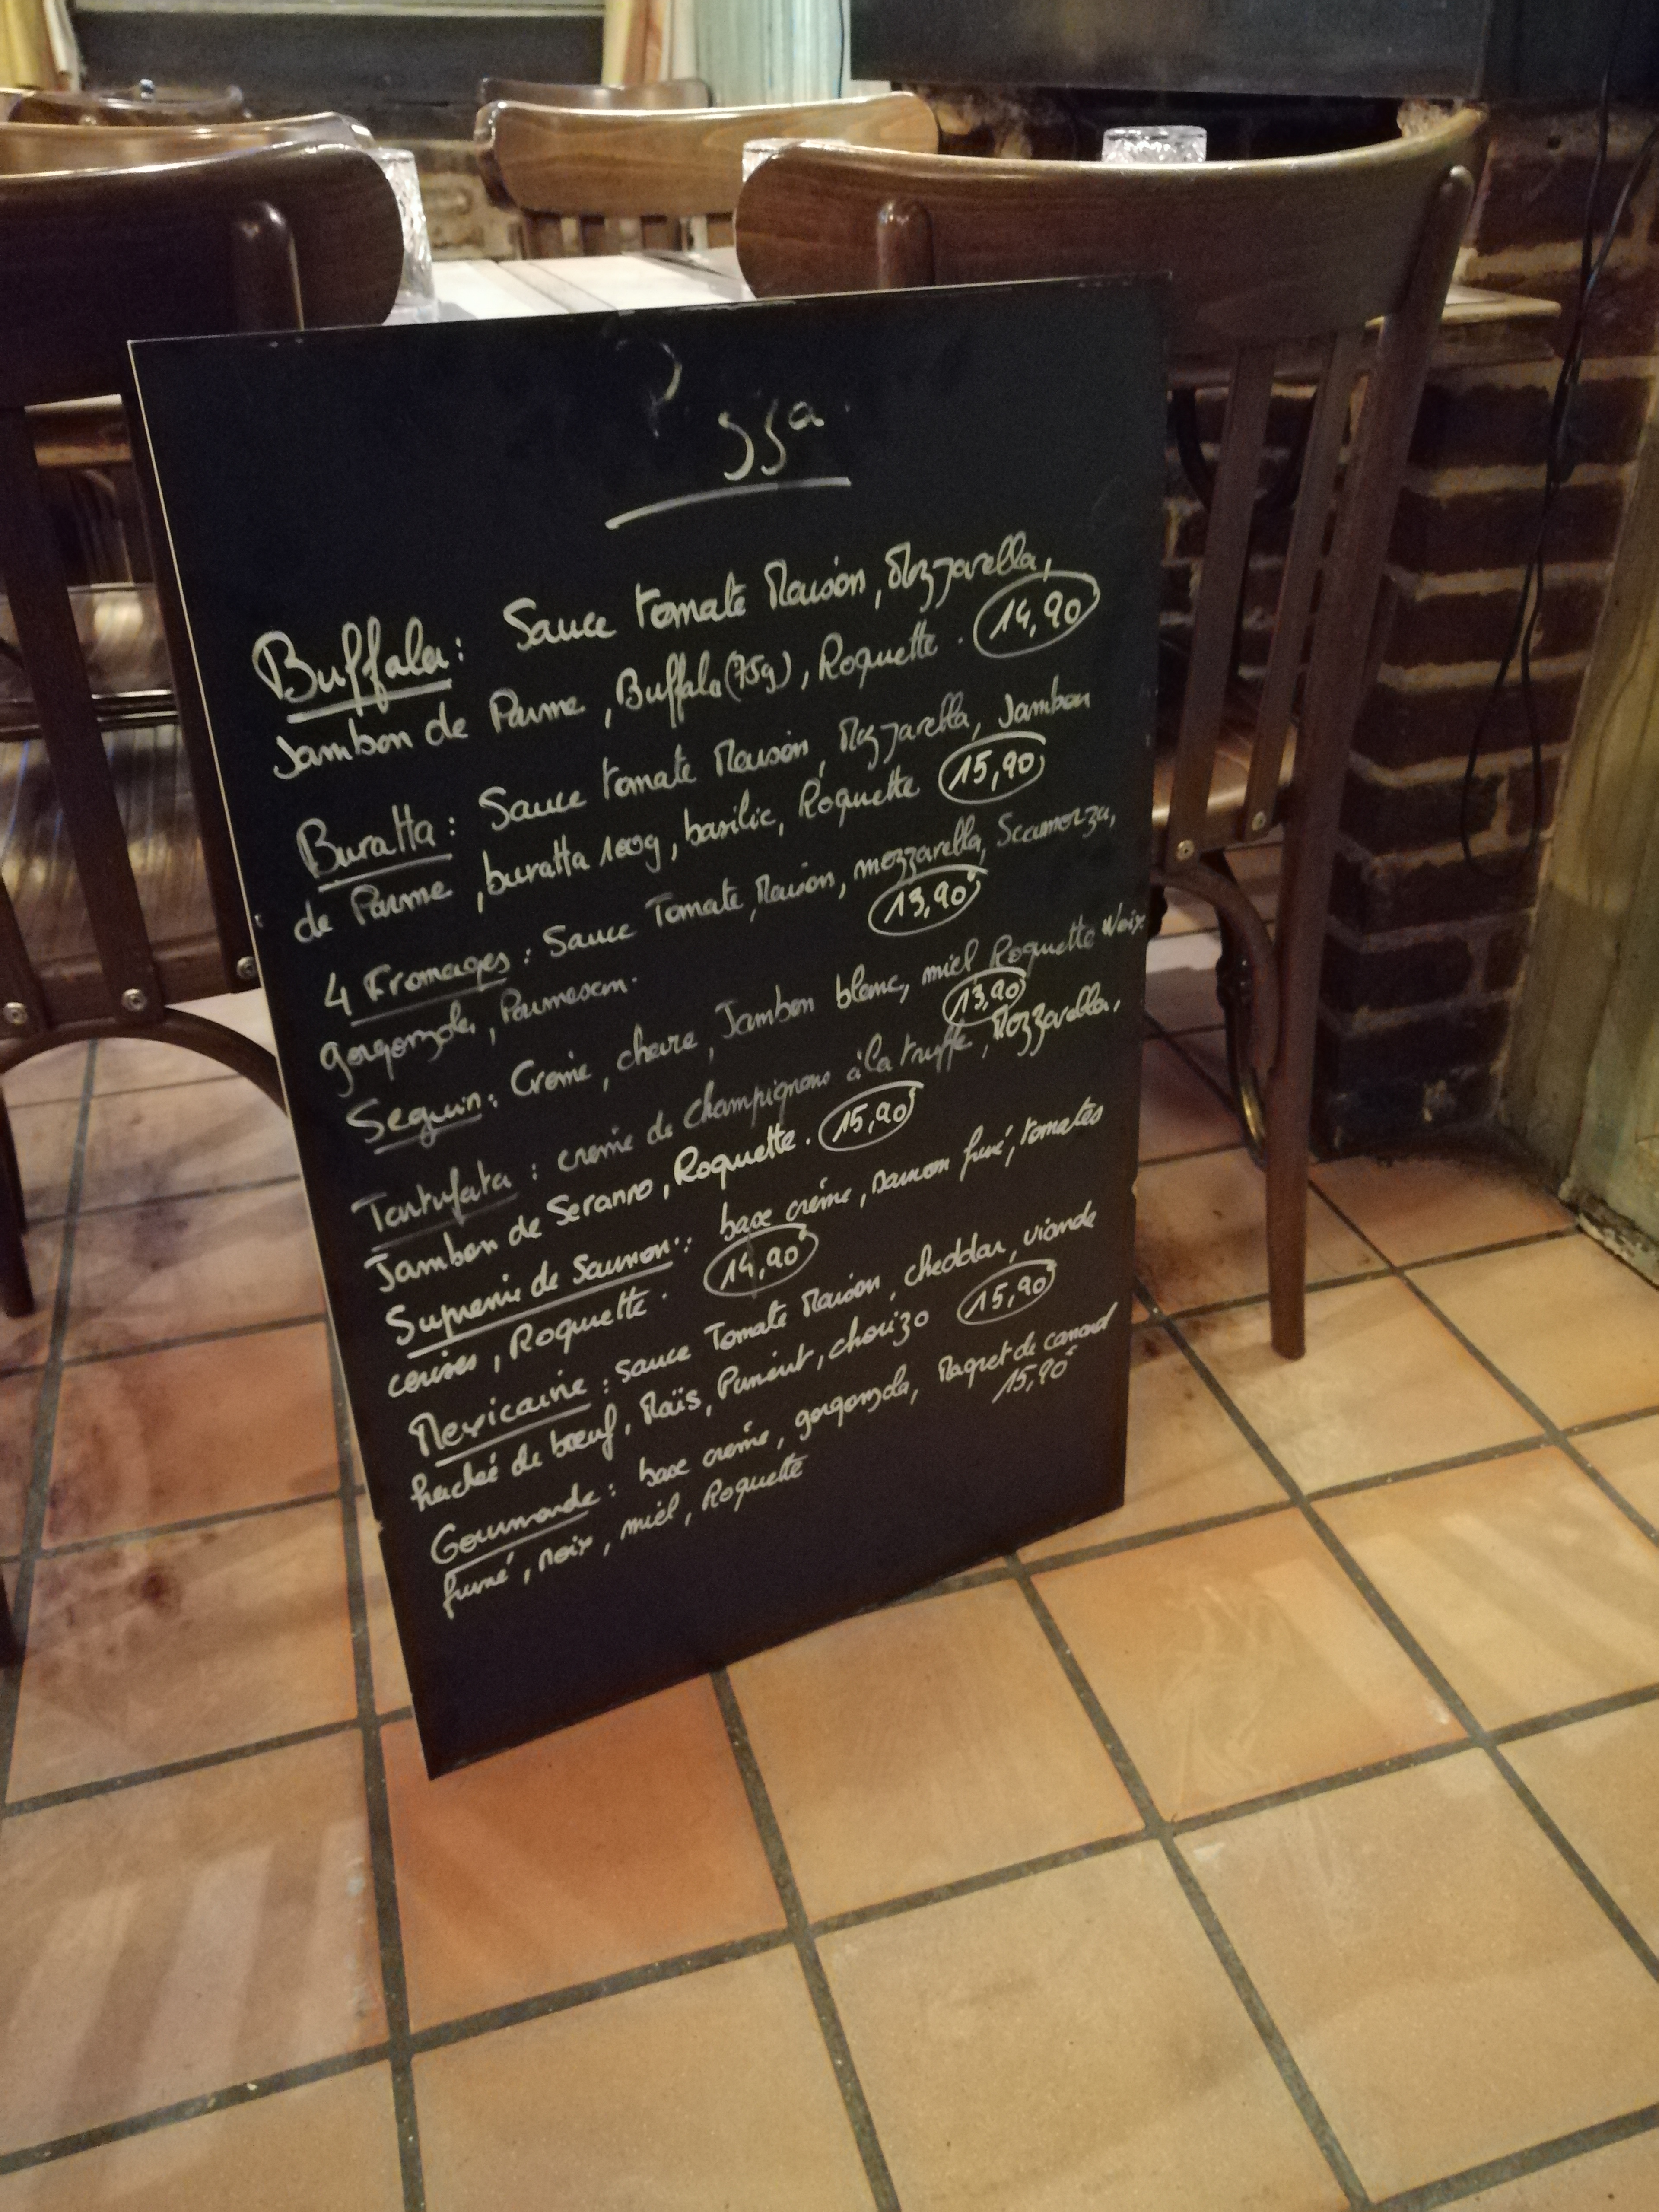 Pizza
Buffala : Sauce tomate Maison, Mozzarella,
Jambon de Parme, Buffala (75g), Roquette. 14,90
Buratta : Sauce tomate Maison, Mozzarella, Jambon
de Parme, buratta 100g, basilic, Roquette 15,90
4 Fromages : Sauce Tomate, Maison, mozzarella, Scamorza,
gorgonzola, Parmesan. 13,90€
Seguin : Crème, chèvre, Jambon blanc, miel Roquette Noix
13,90
Tartufata : crème de champignons à la truffe, Mozzarella,
Jambon de Seranno, Roquette. 15,90€
Supreme de Saumon : base crème, saumon fumé, tomates
cerises, Roquette. 14,90€
Mexicaine : Sauce Tomate Maison, cheddar, viande
haché de bœuf, Maïs, Piment, chorizo 15,90€
Gourmande : base crème, gorgonzola, Magret de canard
15,90€
fumé, noix, miel, Roquette